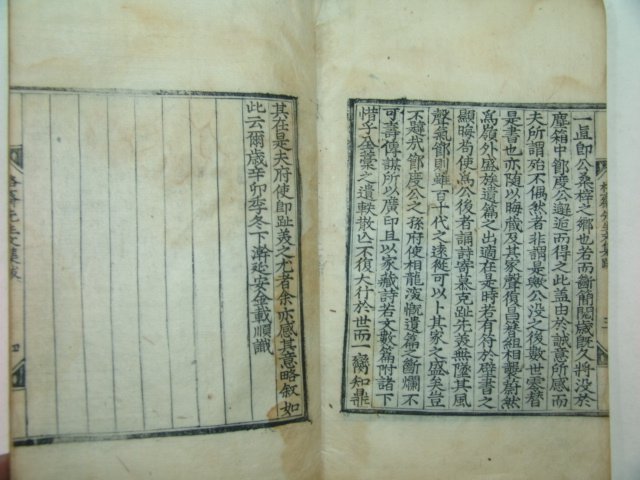 一直卽公桑梓之鄕也若而斷簡閱歲旣久將沒於
塵箱中鄒度公邂逅而得之此盖由於誠意所感而
夫所謂殆不偶然者非謂是歟公沒之後數世零替
是書也亦隨以晦歲及其家聲復昌簪組相望蔚然
爲嶺外盛族遺篇之出適在是時若有待於壁書之
顯晦苟使爲公後者誦詩寄慕克趾先美無墜其風
聲氣節則雖百十代之遠從可以卜其家之盛矣豈
不韙哉鄒度公之孫府使相龍懼遺篇之斷爛不
可壽傳謀所以廣印且以家藏詩若文數篇附諸下
惜乎金藁之遺軼散亾不復大行於世而一臠知鼎
其在是夫府使卽趾美之尤者余亦感其意略叙如
此云爾歲辛卯季冬下澣延安金載順識
先生文集
四
三